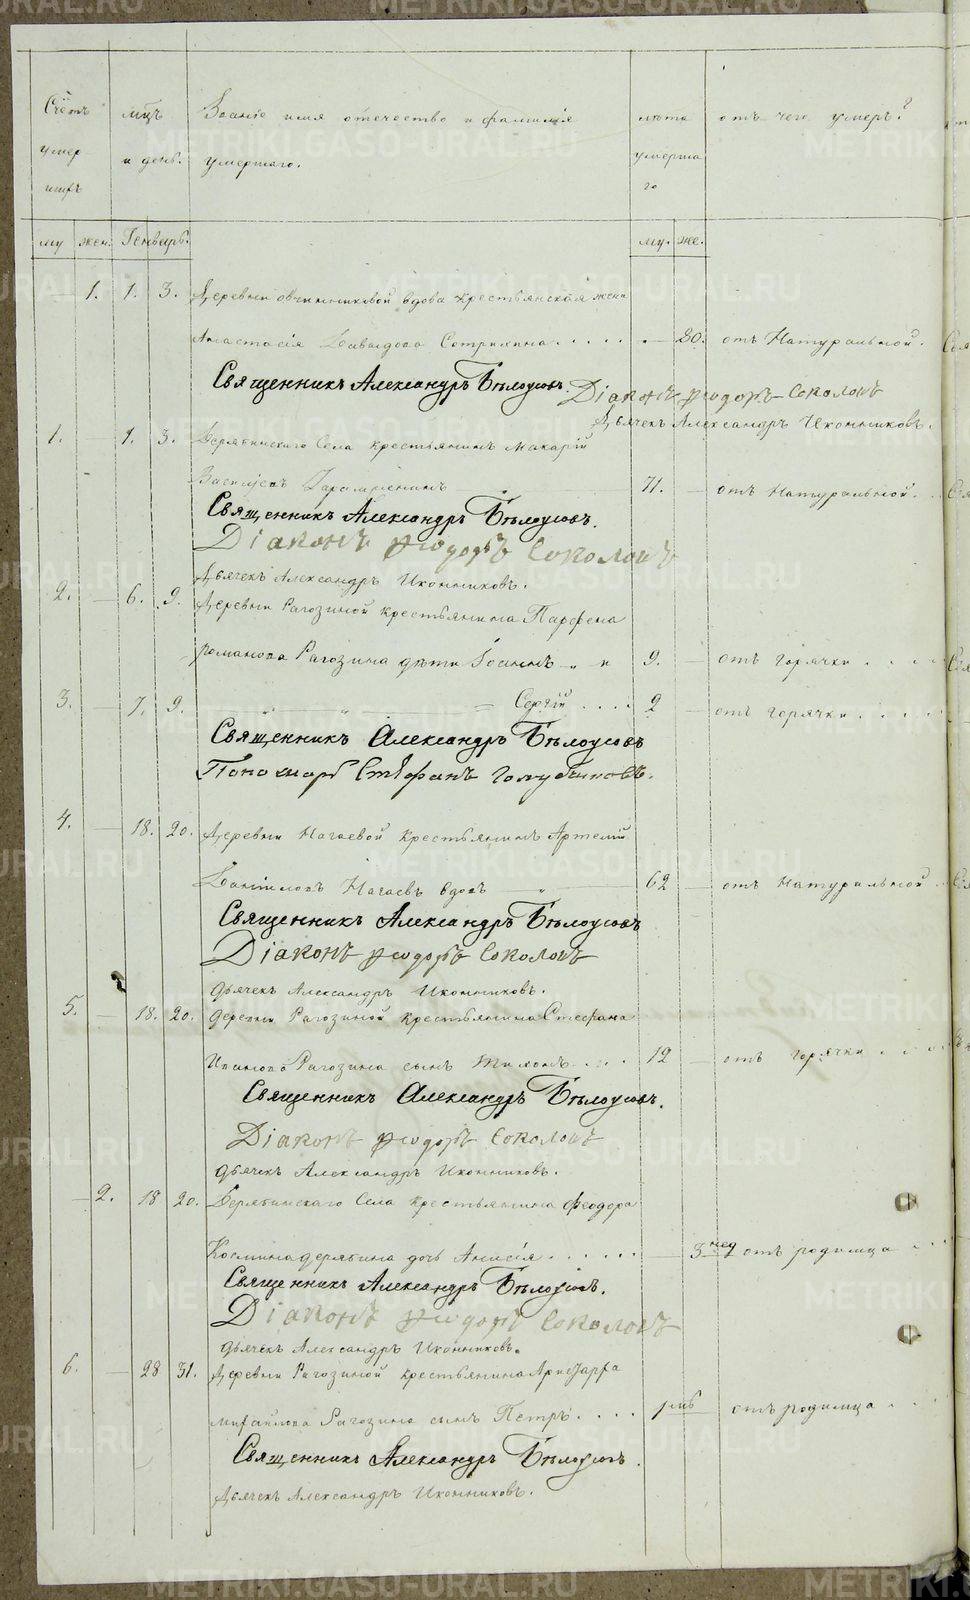 Счетъ умер шихъ
мцъ и день.
Званіе имя отечество и фамилія умершаго.
лѣта умерша го
отъ чего умеръ?
му жен. Генварь. му. же.
1. 1. 3. Деревни Овчинниковой вдова крестьянская жена
Анастасія Давыдова 80. отъ Натуральной.
Священникъ Александръ Бѣлоусовъ. Діаконъ Ѳеодоръ Соколовъ
Дьячекъ Александръ Иконниковъ.
1. 1. 3. Дерябинскаго Села крестьянинъ Макарій
71. отъ Натуральной.
Священникъ Александръ Бѣлоусовъ.
Діаконъ Ѳеодоръ Соколовъ
Дьячекъ Александръ Иконниковъ.
2. 6. 9. Деревни Рагозиной крестьянина Парфена
Романова Рагозина дѣти Іоаннъ и 9. отъ горячки
3. 7. 9. Сергій 2 отъ горячки
Священникъ Александръ Бѣлоусовъ
Пономарь Стефанъ Голубчиковъ.
4. 18. 20. Деревни Нагаевой крестьянинъ Артемій
Даніиловъ Нагаевъ вдовъ 62 отъ Натуральной
Священникъ Александръ Бѣлоусовъ
Діаконъ Ѳеодоръ Соколовъ
Дьячекъ Александръ Иконниковъ.
5. 18. 20. Деревни Рагозиной крестьянина Стефана
Иванова Рагозина сынъ Тихонъ 12 отъ горячки
Священникъ Александръ Бѣлоусовъ.
Діаконъ Ѳеодоръ Соколовъ
Дьячекъ Александръ Иконниковъ.
2. 18 20. Дерябинскаго Села крестьянина Феодора
Космина Дерябина дочь Анисія 3 нед отъ родимца
Священникъ Александръ Бѣлоусовъ.
Діаконъ Ѳеодоръ Соколовъ
Дьячекъ Александръ Иконниковъ.
6. 28 31. Деревни Рагозиной крестьянина Аристарха
Михайлова Рагозина сынъ Петръ отъ родимца
Священникъ Александръ Бѣлоусовъ.
Дьячекъ Александръ Иконниковъ.
METRIKI.GASO-URAL.RU